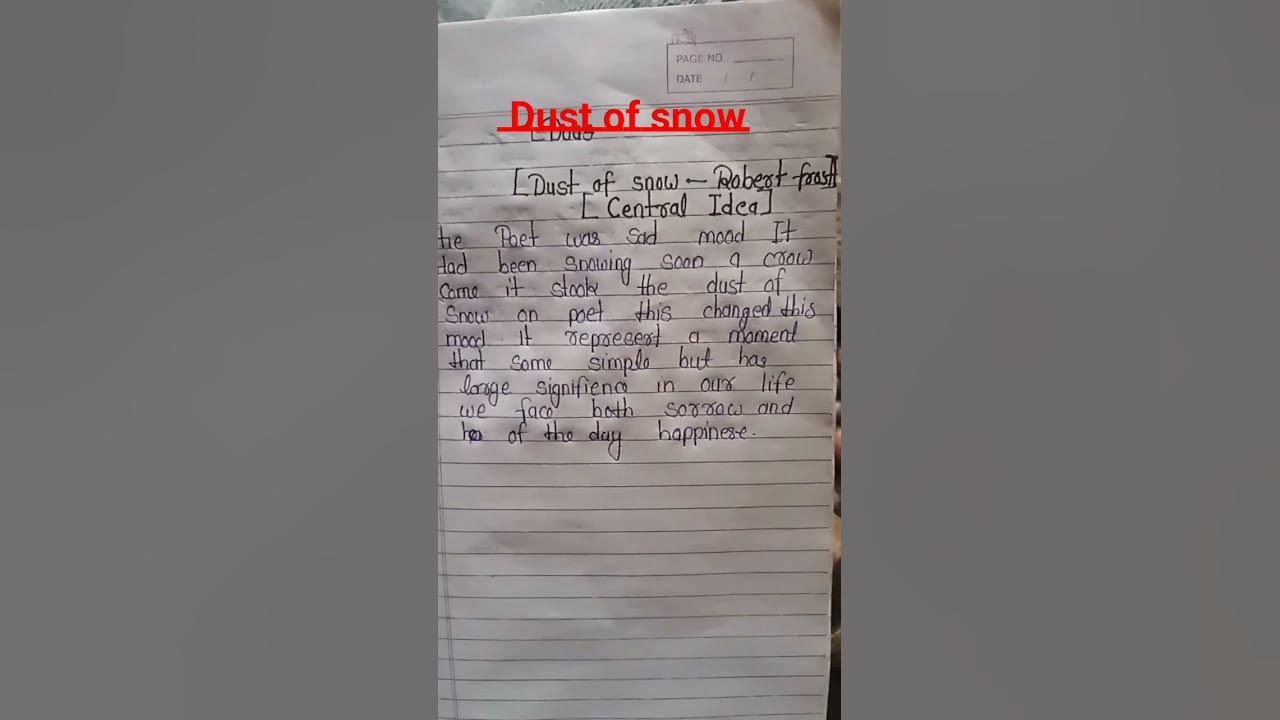 PAGE NO.
DATE / /
Dust of snow
[Dust of snow – Robert frost]
[Central Idea]
the Poet was sad mood It
Had been snowing soon a crow
come it stook the dust of
snow on poet this changed this
mood. It represert a moment
that some simple but has
large signifience in our life
we face both sorrow and
of the day happinese.